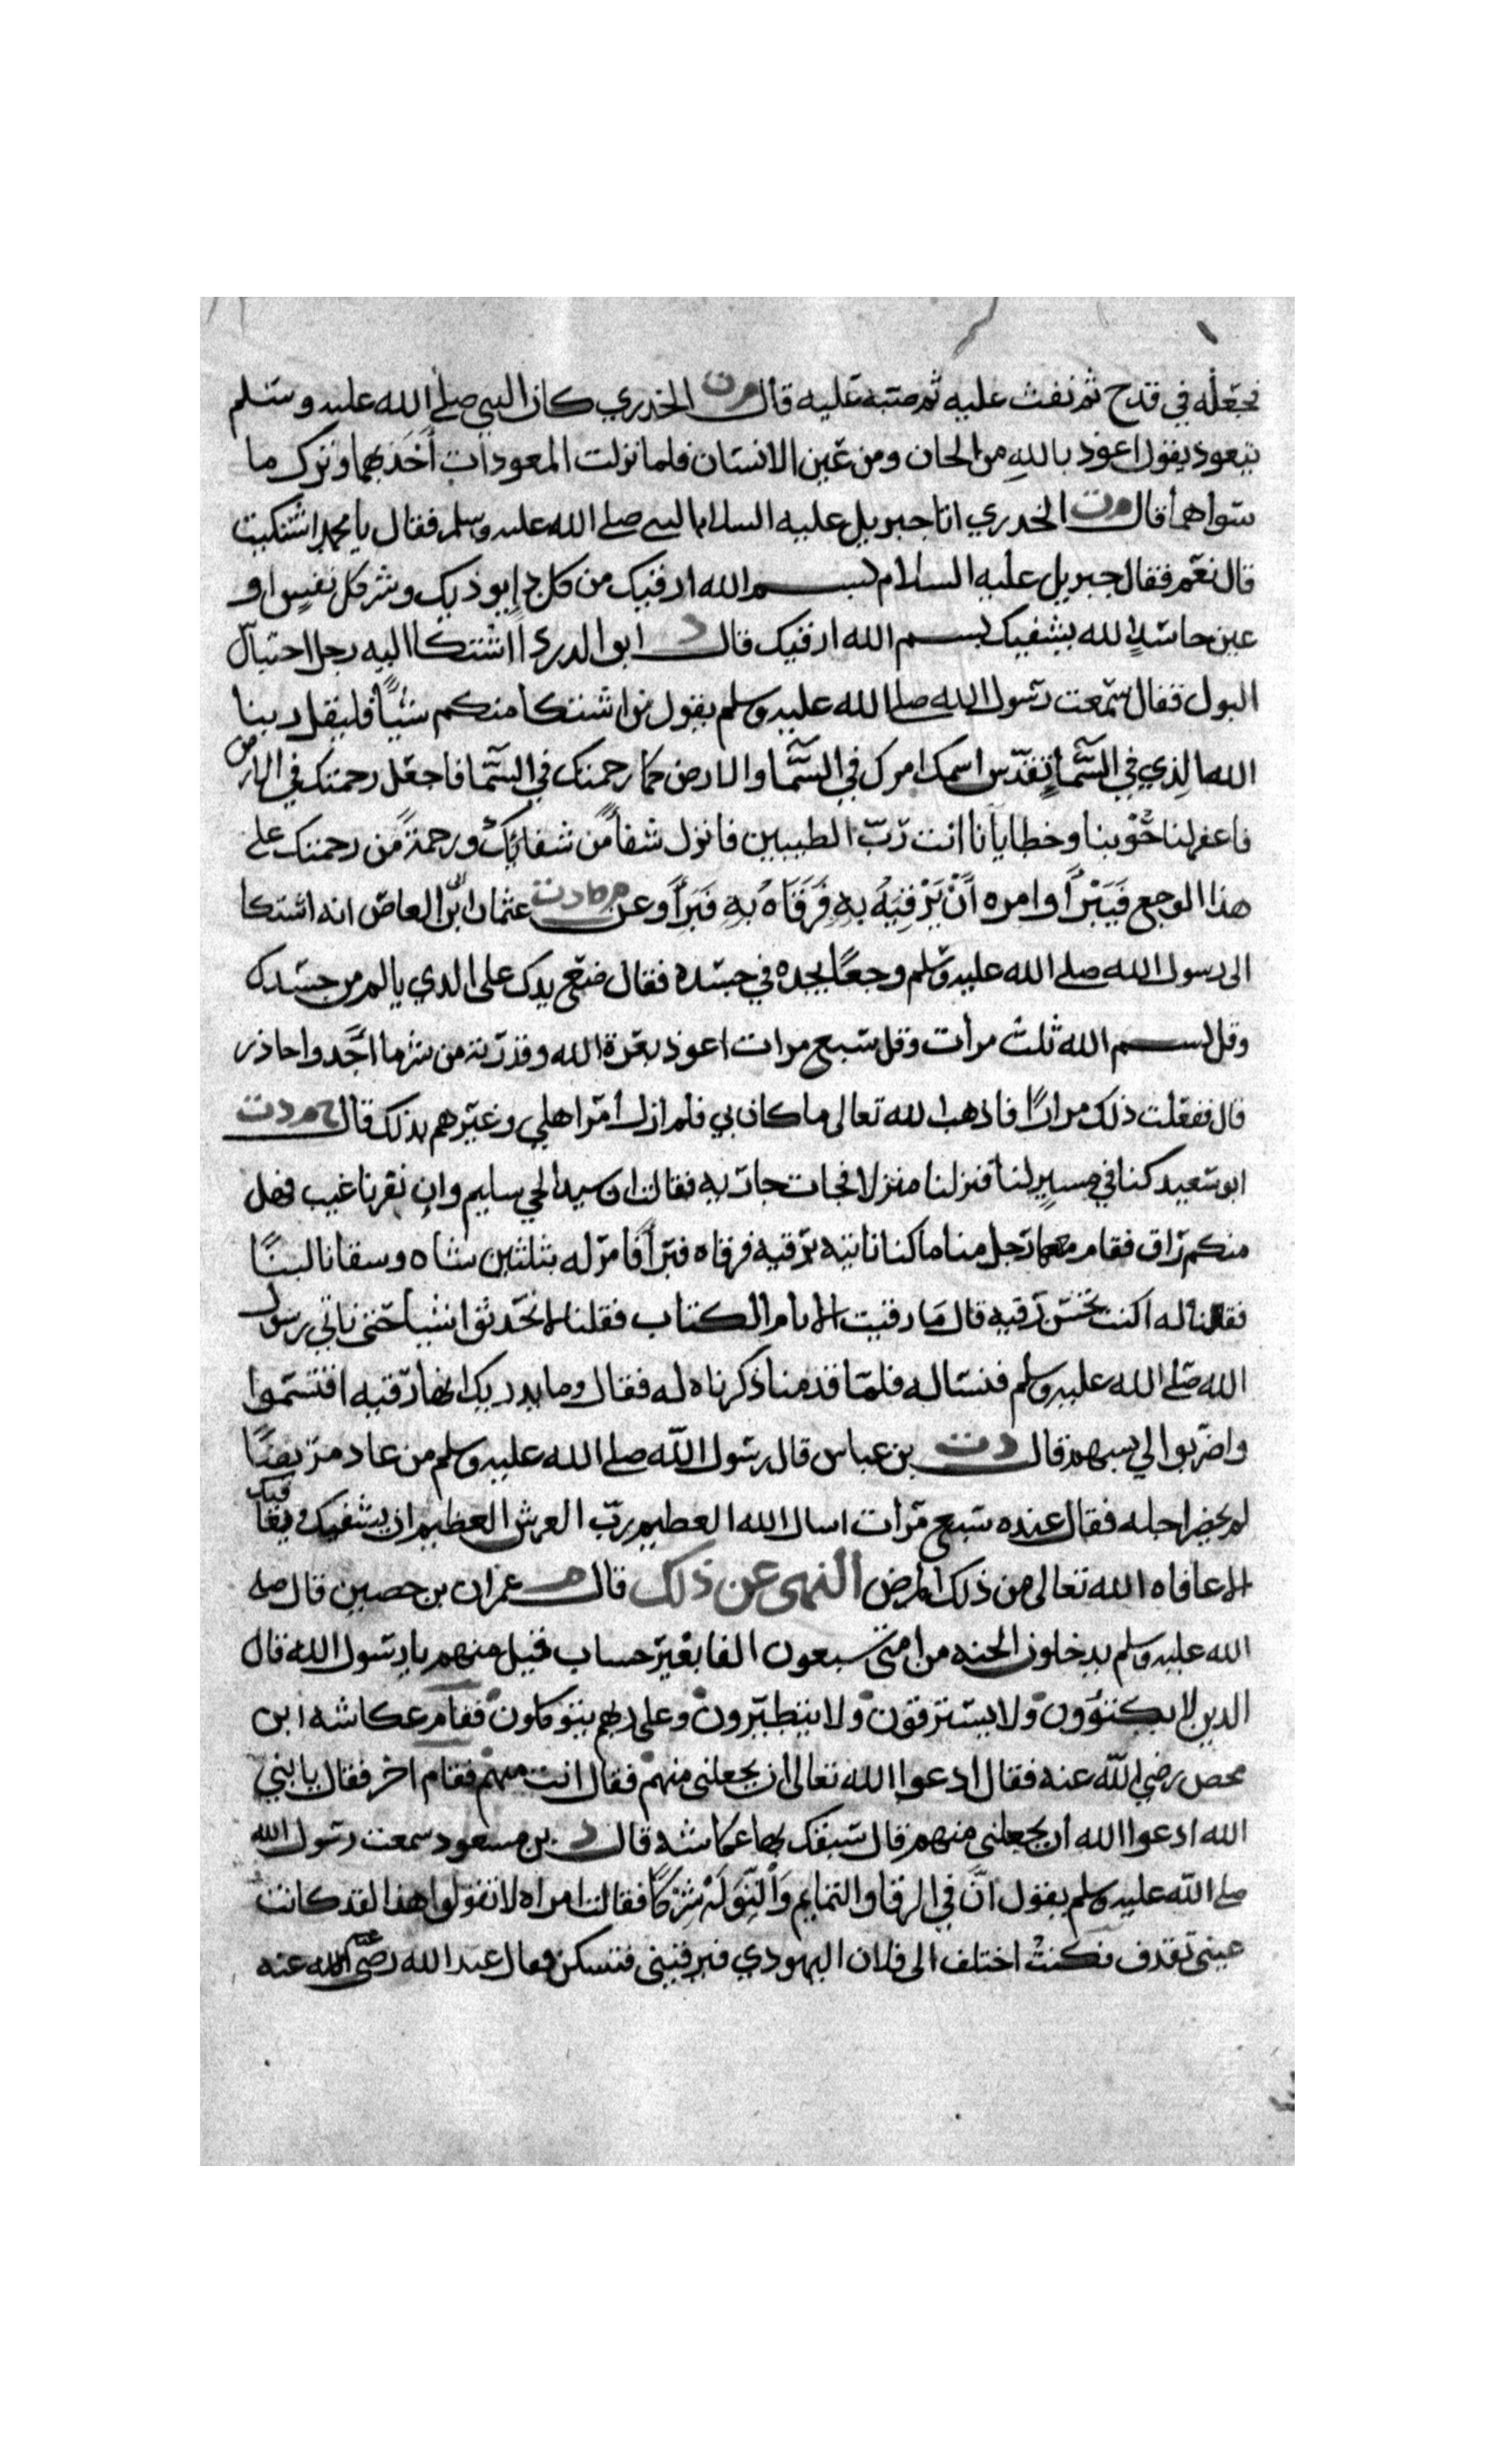 فجعله في قدح ثم نفث عليه ثم صبه عليه قال مرت الخدري كان النبي صلى الله عليه وسلم
يتعوذ يقول اعوذ بالله من الجان ومن عين الانسان فلما نزلت المعوذات أخذ بهما وترك ما
سواهما قال مرت الخدري اتا جبريل عليه السلام النبي صلى الله عليه وسلم فقال يا محمد اشتكيت
قال نعم فقال جبريل عليه السلام بسم الله ارقيك من كل داٍ يوذيك وشر كل نفسٍ او
عين حاسدٍ الله يشفيك بسم الله ارقيك قال د ابو الدردا اشتكا اليه رجل احتباس
البول فقال سمعت رسول الله صلى الله عليه وسلم يقول من اشتكا منكم شيًا فليقل ربنا
الله الذي في السما تقدس اسمك امرك في السما والارض كما رحمتك في السما فاجعل رحمتك في الارض
فاغفر لنا حُوْبنا وخطايانا انت ربّ الطيبين فانزل شفاً من شفائك ورحمة من رحمتك على
هذا الوجع فيَبْرأ وامره أنْ يَرْقِيَهُ بهِ فَرَقَاهُ بهِ فَبَرَأ وعن م ط د ت عثمان ابن ابي العاص انه اشتكا
الى رسول الله صلى الله عليه وسلم وجعًا يجده في جسده فقال ضع يدك على الذي يالم من جسدك
وقل بسم الله ثلث مرات وقل سبع مرات اعوذ بعزة الله وقدرته من شر ما اجد واحاذر
قال ففعلت ذلك مرارًا فاذهب الله تعالى ما كان بي فلم ازل أمر اهلي وغيرهم بذلك قال خ م د ت
ابو سعيد كنا في مسيرٍ لنا فنزلنا منزلا فجات جاريه فقالت ان سيد الحي سليم وان نفرنا غيب فهل
منكم راق فقام معها رجل منا ما كنا نابنه برقيه فرقاه فبرأ فامر له بثلثين شاه وسقانا لبنًا
فقلنا له اكنت تحسن رقيه قال ما رقيت الا بام الكتاب فقلنا لا تحدثوا شيا حتى ناتي رسول
الله صلى الله عليه وسلم فنساله فلما قدمنا ذكرناه له فقال وما يدريك انها رقيه اقتسموا
واضربوا لي بسهم قال د ت بن عباس قال رسول الله صلى الله عليه وسلم من عاد مريضًا
لم يحضر اجله فقال عنده سبع مرات اسال الله العظيم رب العرش العظيم ان يشفيك ويعافيك
الا عافاه الله تعالى من ذلك المرض النهى عن ذلك قال م عمران بن حصين قال صلى
الله عليه وسلم يدخلون الجنه من امتى سبعون الفا بغير حساب قيل منهم يا رسول الله قال
الذين لا يكتؤون ولا يسترقون ولا يتطيرون وعلى ربهم يتوكلون فقام عكاشه ابن
محصن رضي الله عنه فقال ادعوا الله تعالى ان يجعلنى منهم فقال انت منهم فقام اخر فقال يا نبي
الله ادعوا الله ان يجعلنى منهم قال سبقك بها عكاشه قال د بن مسعود سمعت رسول الله
صلى الله عليه وسلم يقول انّ في الرقا والتمايم وَالتِّوَلَة شِرْكًا فقالت امراه لا تقولوا هذا لقد كانت
عينى تقذف فكنتُ اختلف الى فلان اليهودي فيرقينى فتسكن فقال عبد الله رضى الله عنه